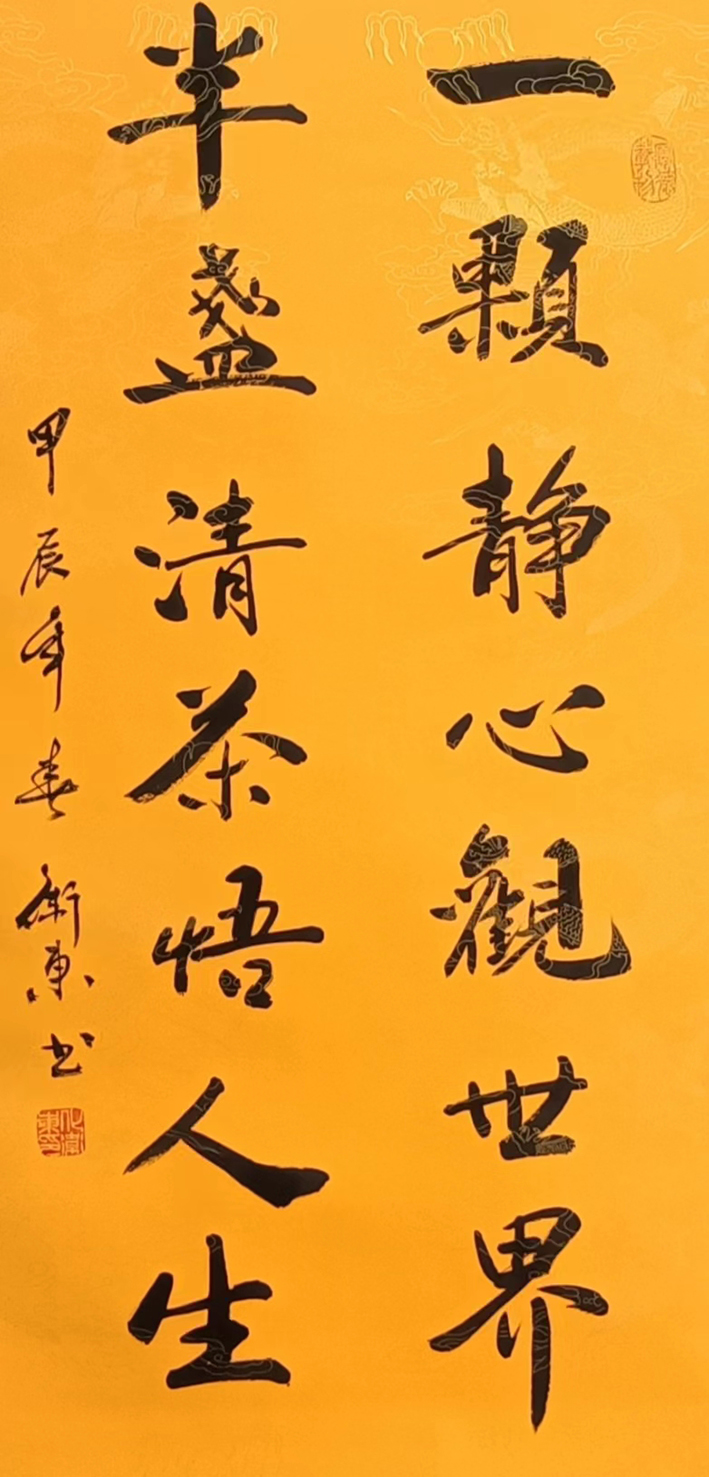 一颗靜心觀世界
半盏清茶悟人生
甲辰年春衛東书